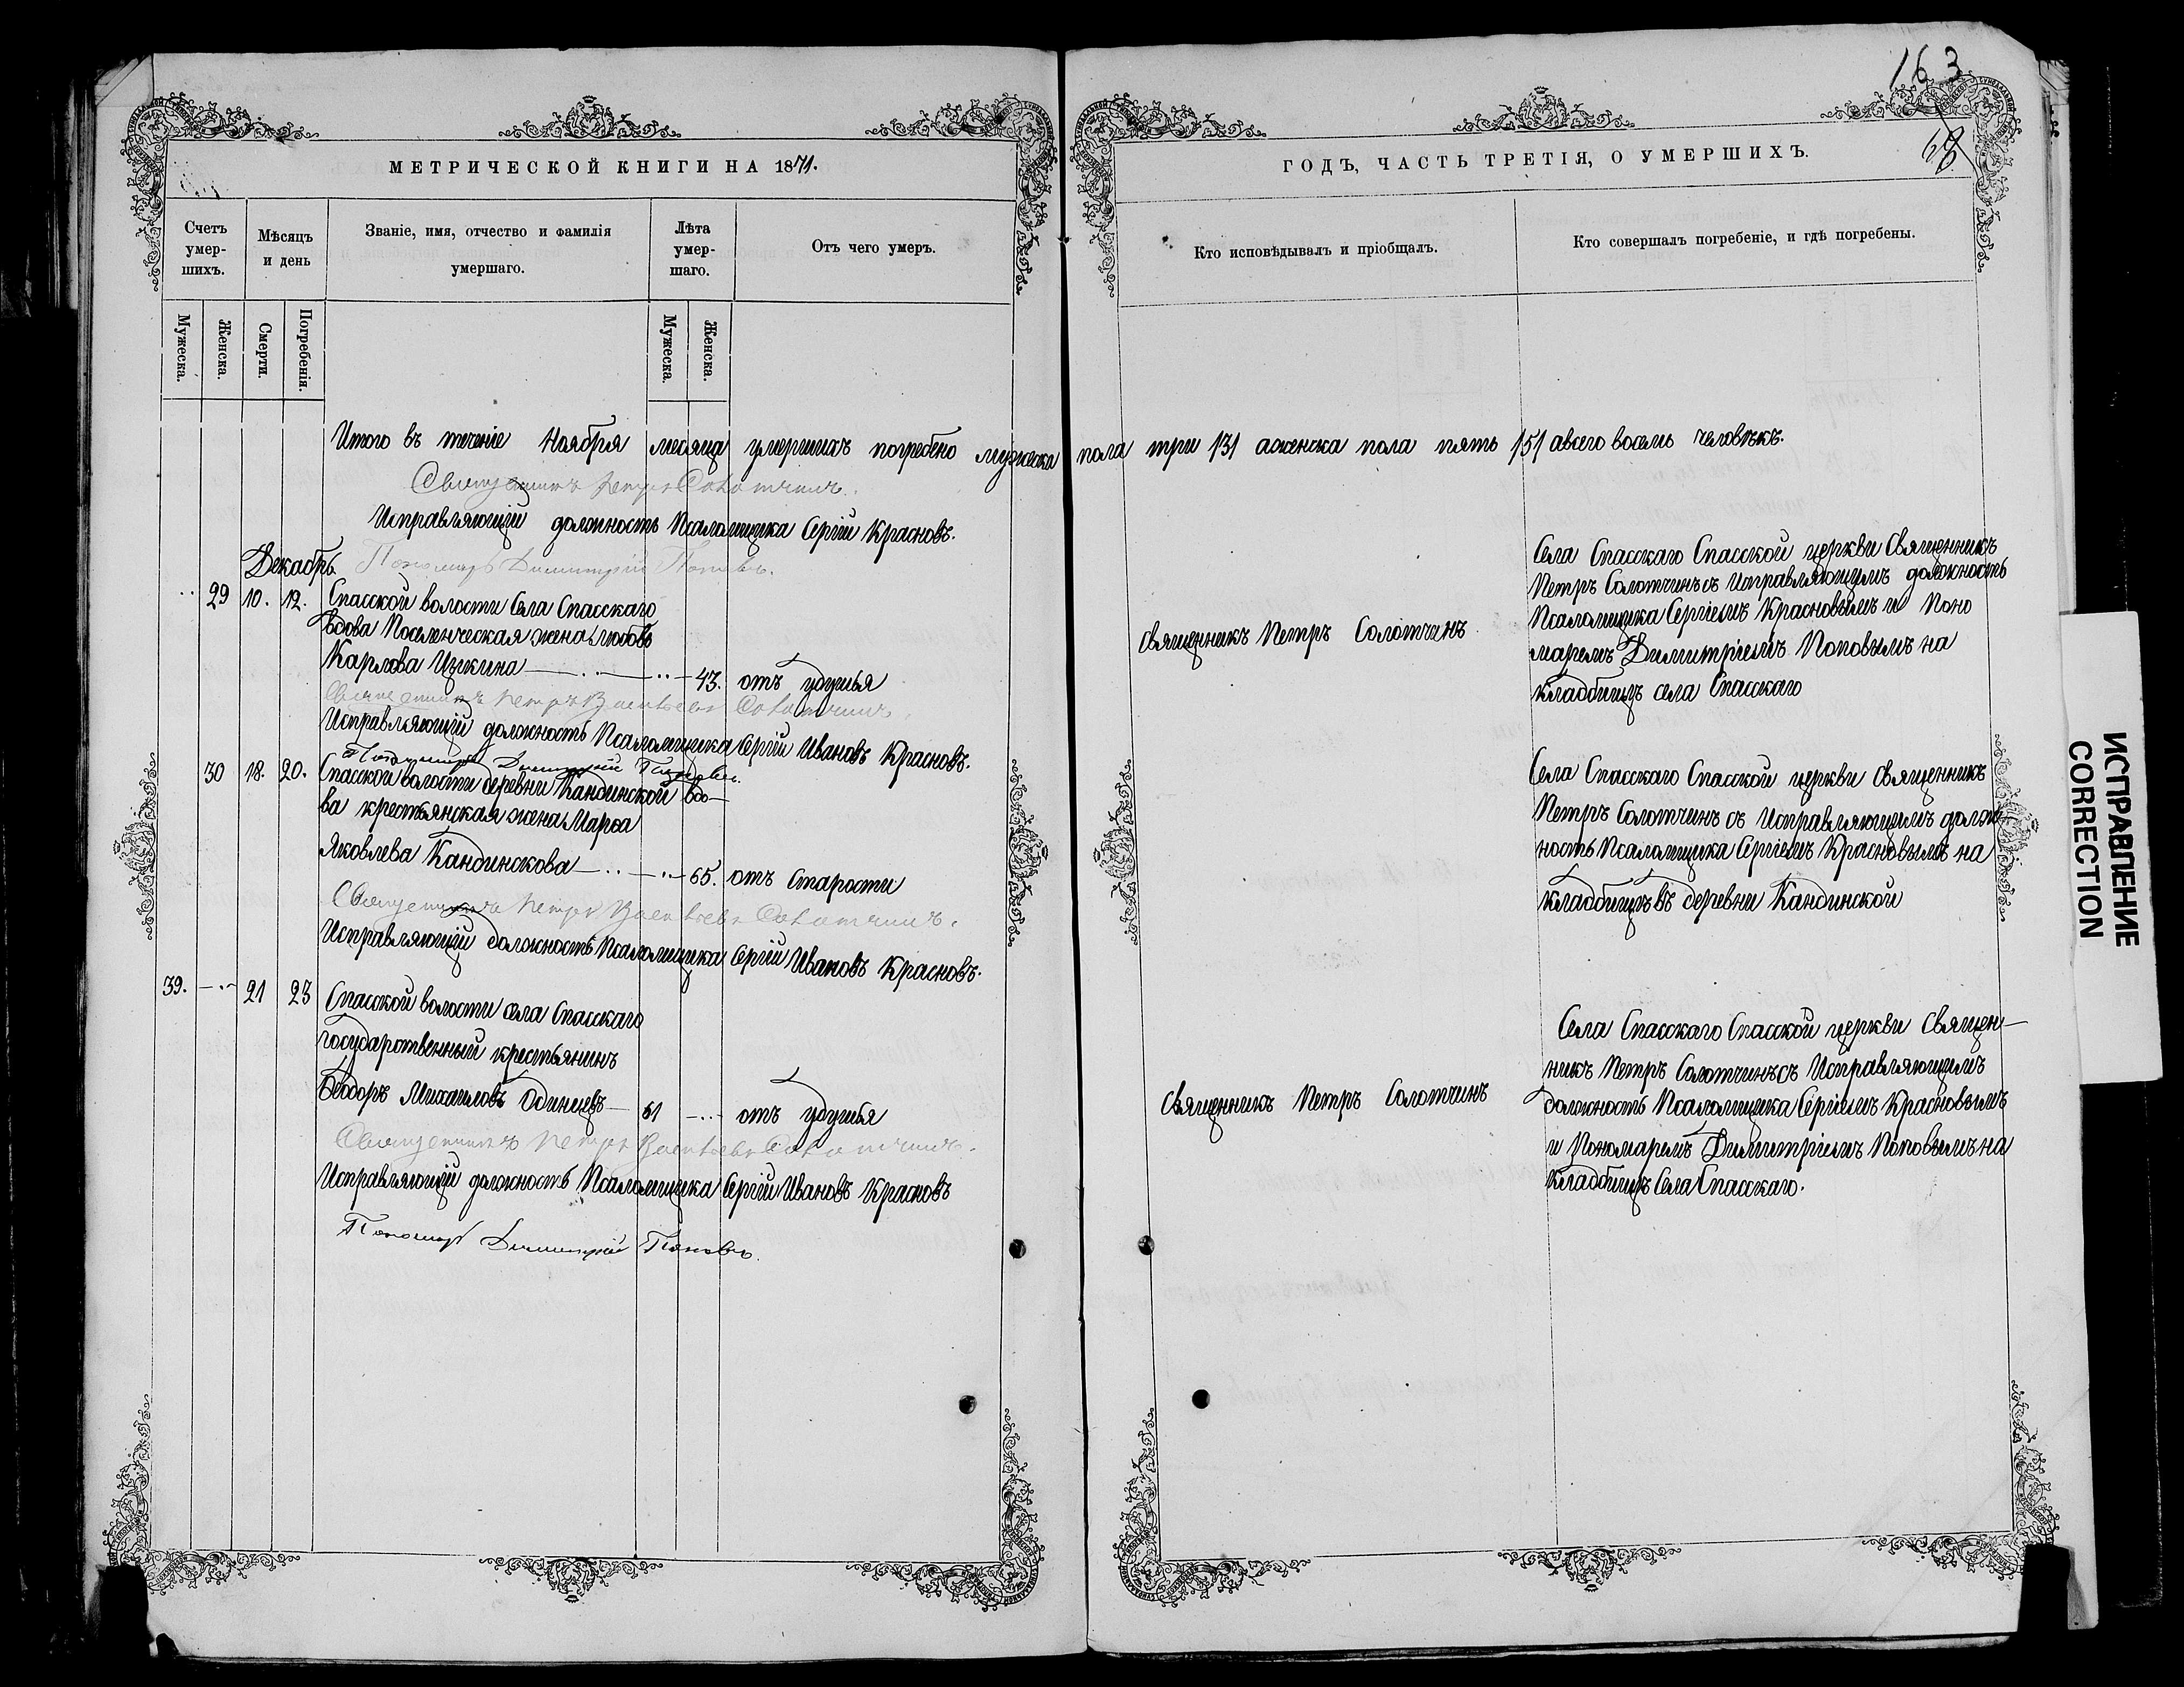 163
68
МЕТРИЧЕСКОЙ КНИГИ НА 1871.
Счетъ умер-шихъ.
Мѣсяцъ и день
Званіе, имя, отчество и фамилія умершаго.
Лѣта умер-шаго.
Отъ чего умеръ.
Мужеска.
Женска.
Смерти.
Погребенія.
Мужеска.
Женска.
ГОДЪ, ЧАСТЬ ТРЕТІЯ, О УМЕРШИХЪ.
Кто исповѣдывалъ и пріобщалъ.
Кто совершалъ погребеніе, и гдѣ погребены.
Итого въ теченіе Ноября месяца умершихъ погребено мужеска пола три /3/ аженска пола пять /5/ авсего восемь человѣкъ.
Священникъ Петръ Солотчинъ.
Исправляющій должность Псаломщика Сергій Красновъ.
Пономарь Димитрій Поповъ.
Декабрь.
29 10. 12. Спасской волости Села Спасскаго
вдова Поселенческая жена Любовь
Карлова Цукина 43. отъ удушья
Священникъ Петръ Васильевъ Солотчинъ.
Исправляющій должность Псаломщика Сергій Ивановъ Красновъ.
Пономарь Димитрій Поповъ.
Священникъ Петръ Солотчинъ
Села Спасскаго Спасской церкви Священникъ
Петръ Солотчинъ съ Исправляющимъ должность
Псаломщика Сергіемъ Красновымъ и Поно
маремъ Димитріемъ Поповымъ на
кладбищѣ села Спасскаго
30 18. 20. Спасской волости деревни Кандинской вдо-
ва крестьянская жена Марѳа
Яковлева Кандинскова 65. отъ Старости
Священникъ Петръ Васильевъ Солотчинъ.
Исправляющій должность Псаломщика Сергій Ивановъ Красновъ.
Села Спасскаго Спасской церкви Священникъ
Петръ Солотчинъ съ Исправляющимъ долж
ность Псаломщика Сергіемъ Красновымъ на
кладбищѣ въ деревни Кандинской
39. 21 23 Спасской волости села Спасскаго
государственный крестьянинъ
Ѳеодоръ Михаиловъ Одинцевъ 61 отъ удушья
Священникъ Петръ Васильевъ Солотчинъ.
Исправляющій должность Псаломщика Сергій Ивановъ Красновъ
Пономарь Димитрій Поповъ.
Священникъ Петръ Солотчинъ
Села Спасскаго Спасской церкви Священ-
никъ Петръ Солотчинъ съ Исправляющимъ
должность Псаломщика Сергіемъ Красновымъ
и Пономаремъ Димитріемъ Поповымъ на
кладбищѣ Села Спасскаго.
ИСПРАВЛЕНИЕ
CORRECTION